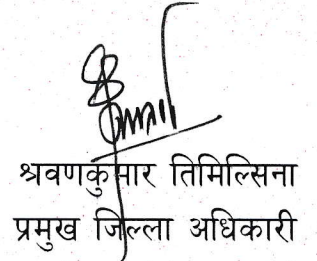 श्रवणकुमार तिमिल्सिना
प्रमुख जिल्ला अधिकारी